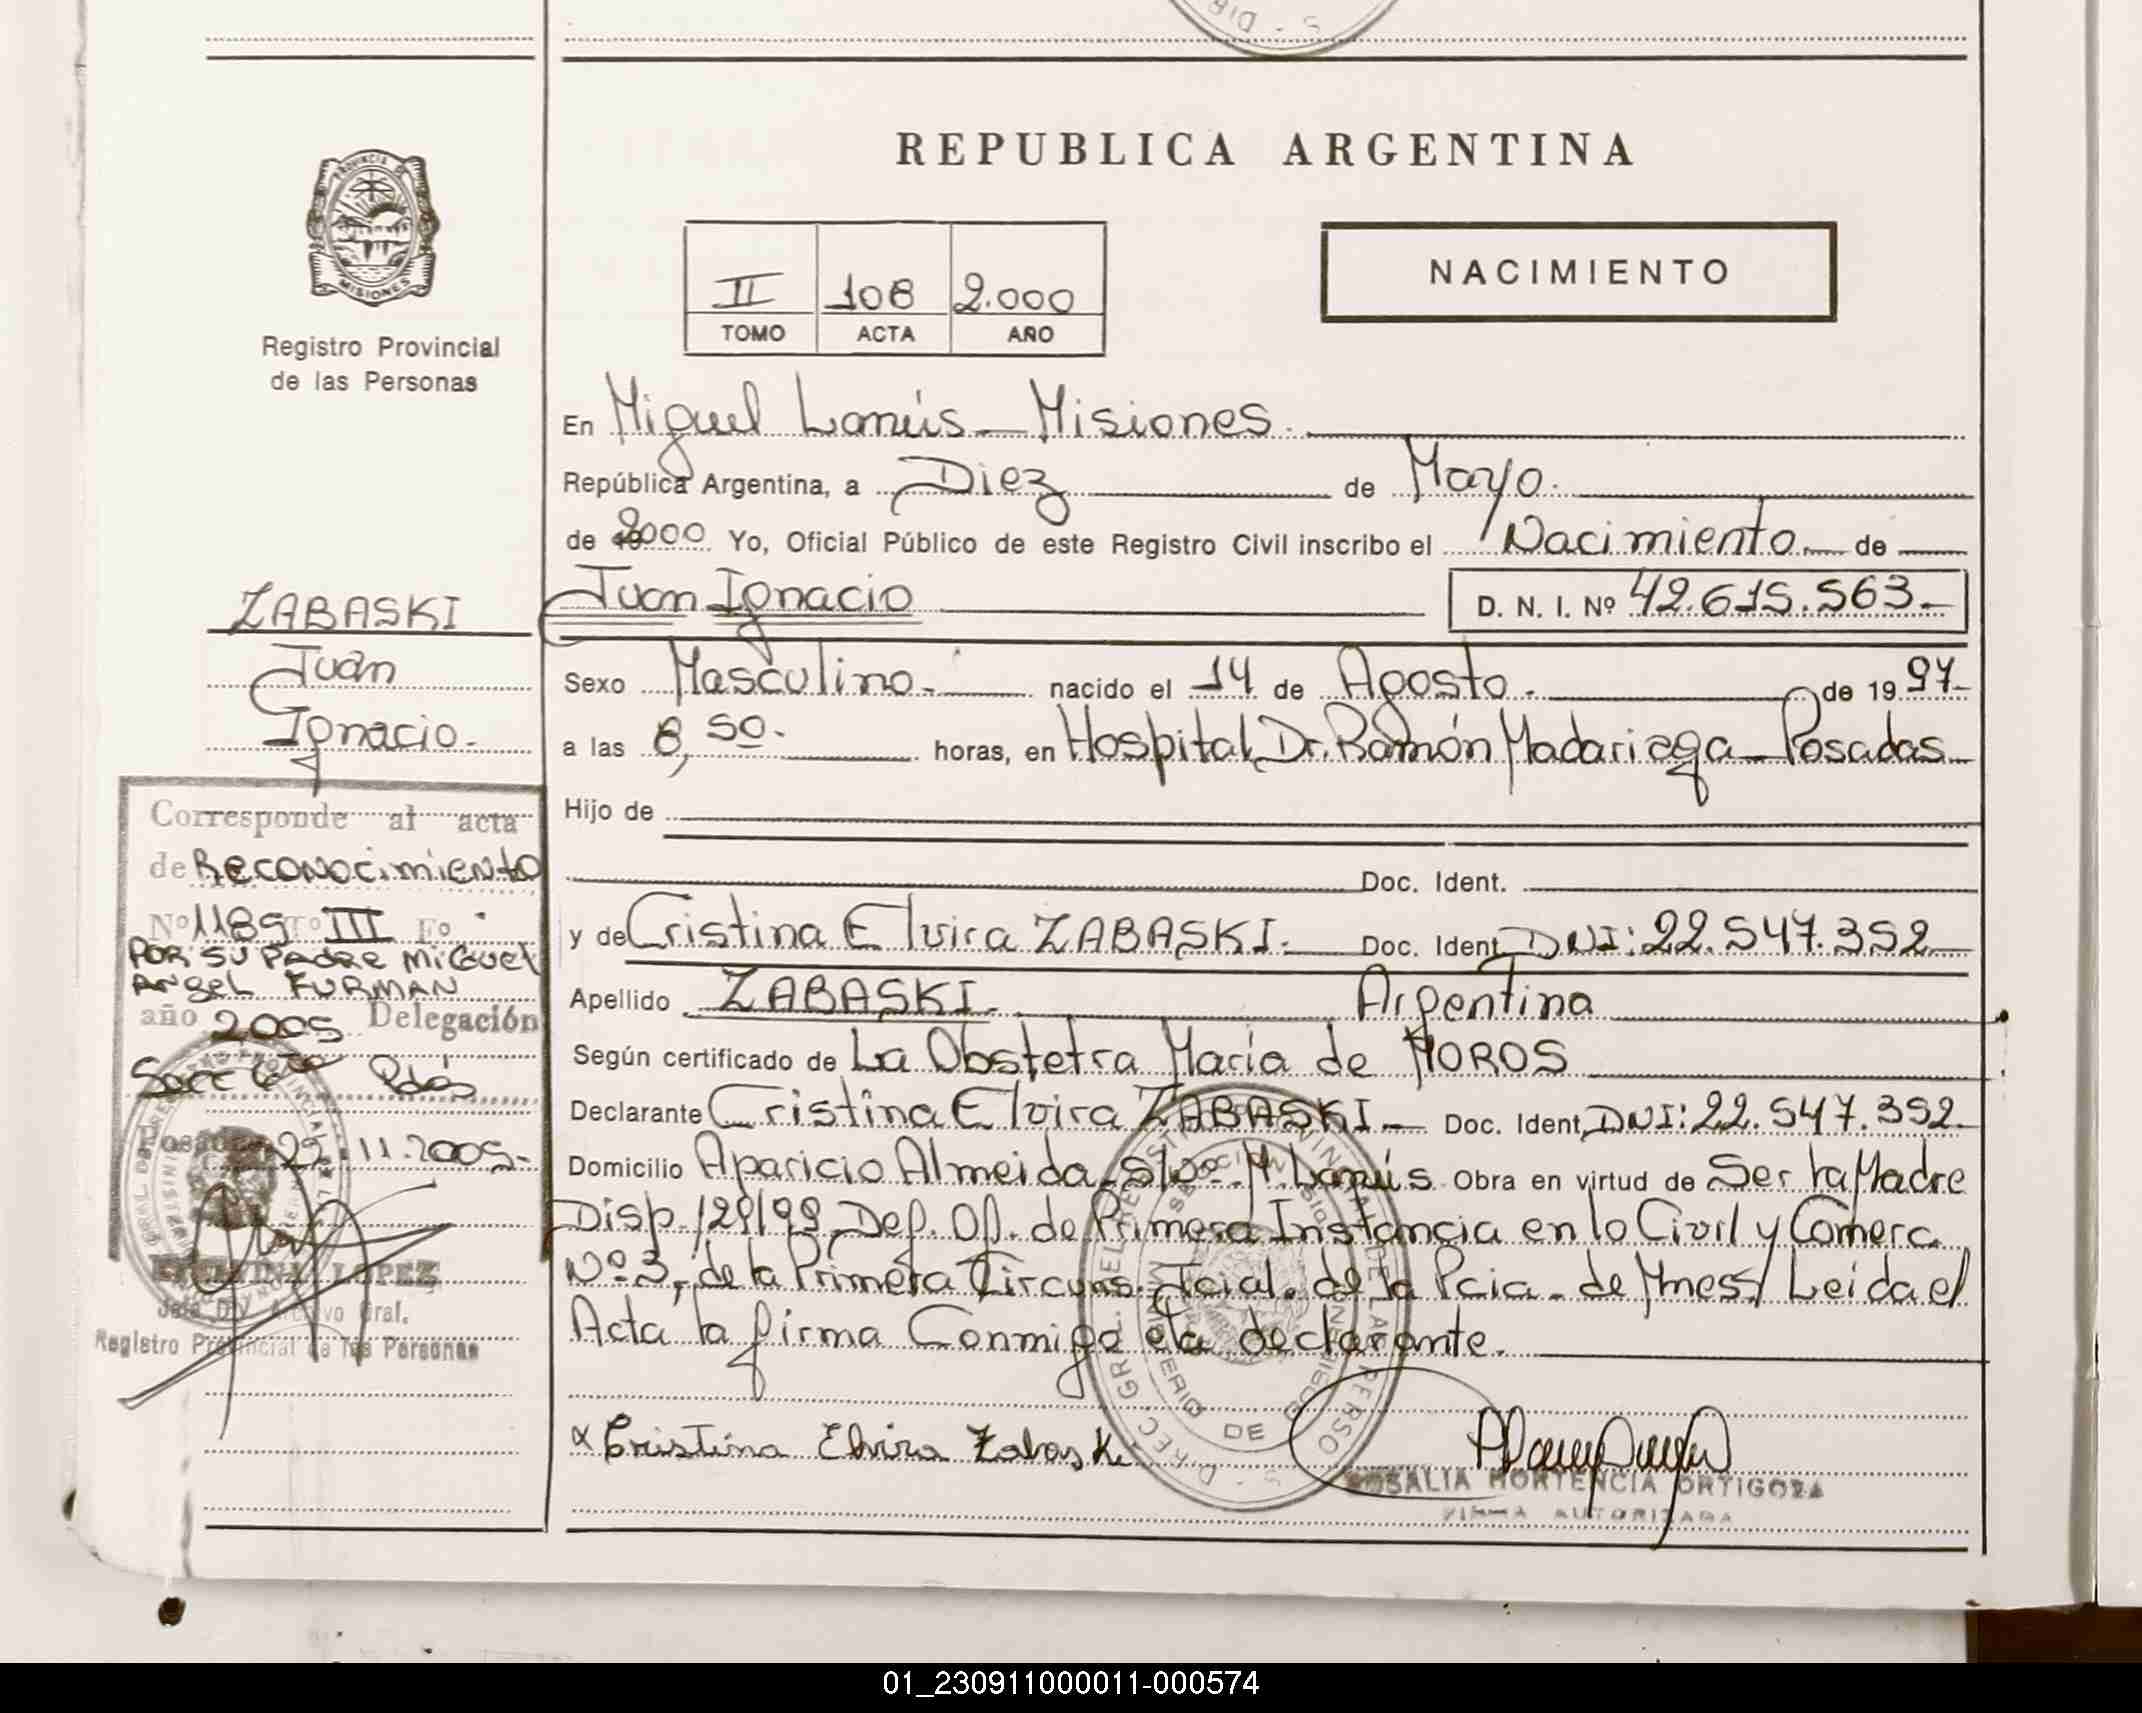 REPUBLICA ARGENTINA
PROVINCIA DE
MISIONES
Registro Provincial
de las Personas
II 108 2.000
TOMO ACTA AÑO
NACIMIENTO
En Miguel Lanús - Misiones.
República Argentina, a Diez de Mayo.
de 2000 Yo, Oficial Público de este Registro Civil inscribo el Nacimiento de
Juan Ignacio
D. N. I. Nº 42.615.563-
ZABASKI
Juan
Ignacio.
Sexo Masculino. nacido el 14 de Agosto. de 1997-
a las 8,50. horas, en Hospital Dr. Ramón Madariaga - Posadas
Hijo de
Doc. Ident.
y de Cristina Elvira ZABASKI. Doc. Ident. DNI: 22.547.352
Apellido ZABASKI. Argentina
Según certificado de La Obstetra María de MOROS
Declarante Cristina Elvira ZABASKI - Doc. Ident. DNI: 22.547.352.
Domicilio Aparicio Almeida S/Nº M. Lanús. Obra en virtud de Ser la Madre
Disp. 129/99 Def. Of. de Primera Instancia en lo Civil y Comerc.
Nº 3, de la Primera Circuns. Jcial. de la Pcia. de Mnes/ Leida el
Acta la firma Conmigo la declarante.
x Cristina Elvira Zabaski
ROSALIA HORTENCIA ORTIGOZA
FIRMA AUTORIZADA
Corresponde al acta
de Reconocimiento
Nº 1189 Tº III Fº
POR SU PADRE MIGUEL
ANGEL FURMAN
año 2005 Delegación
Secc 6ta Pdas
Posadas 22.11.2005-
LOPEZ
Jefa Div. Archivo Gral.
Registro Provincial de las Personas
01_230911000011-000574